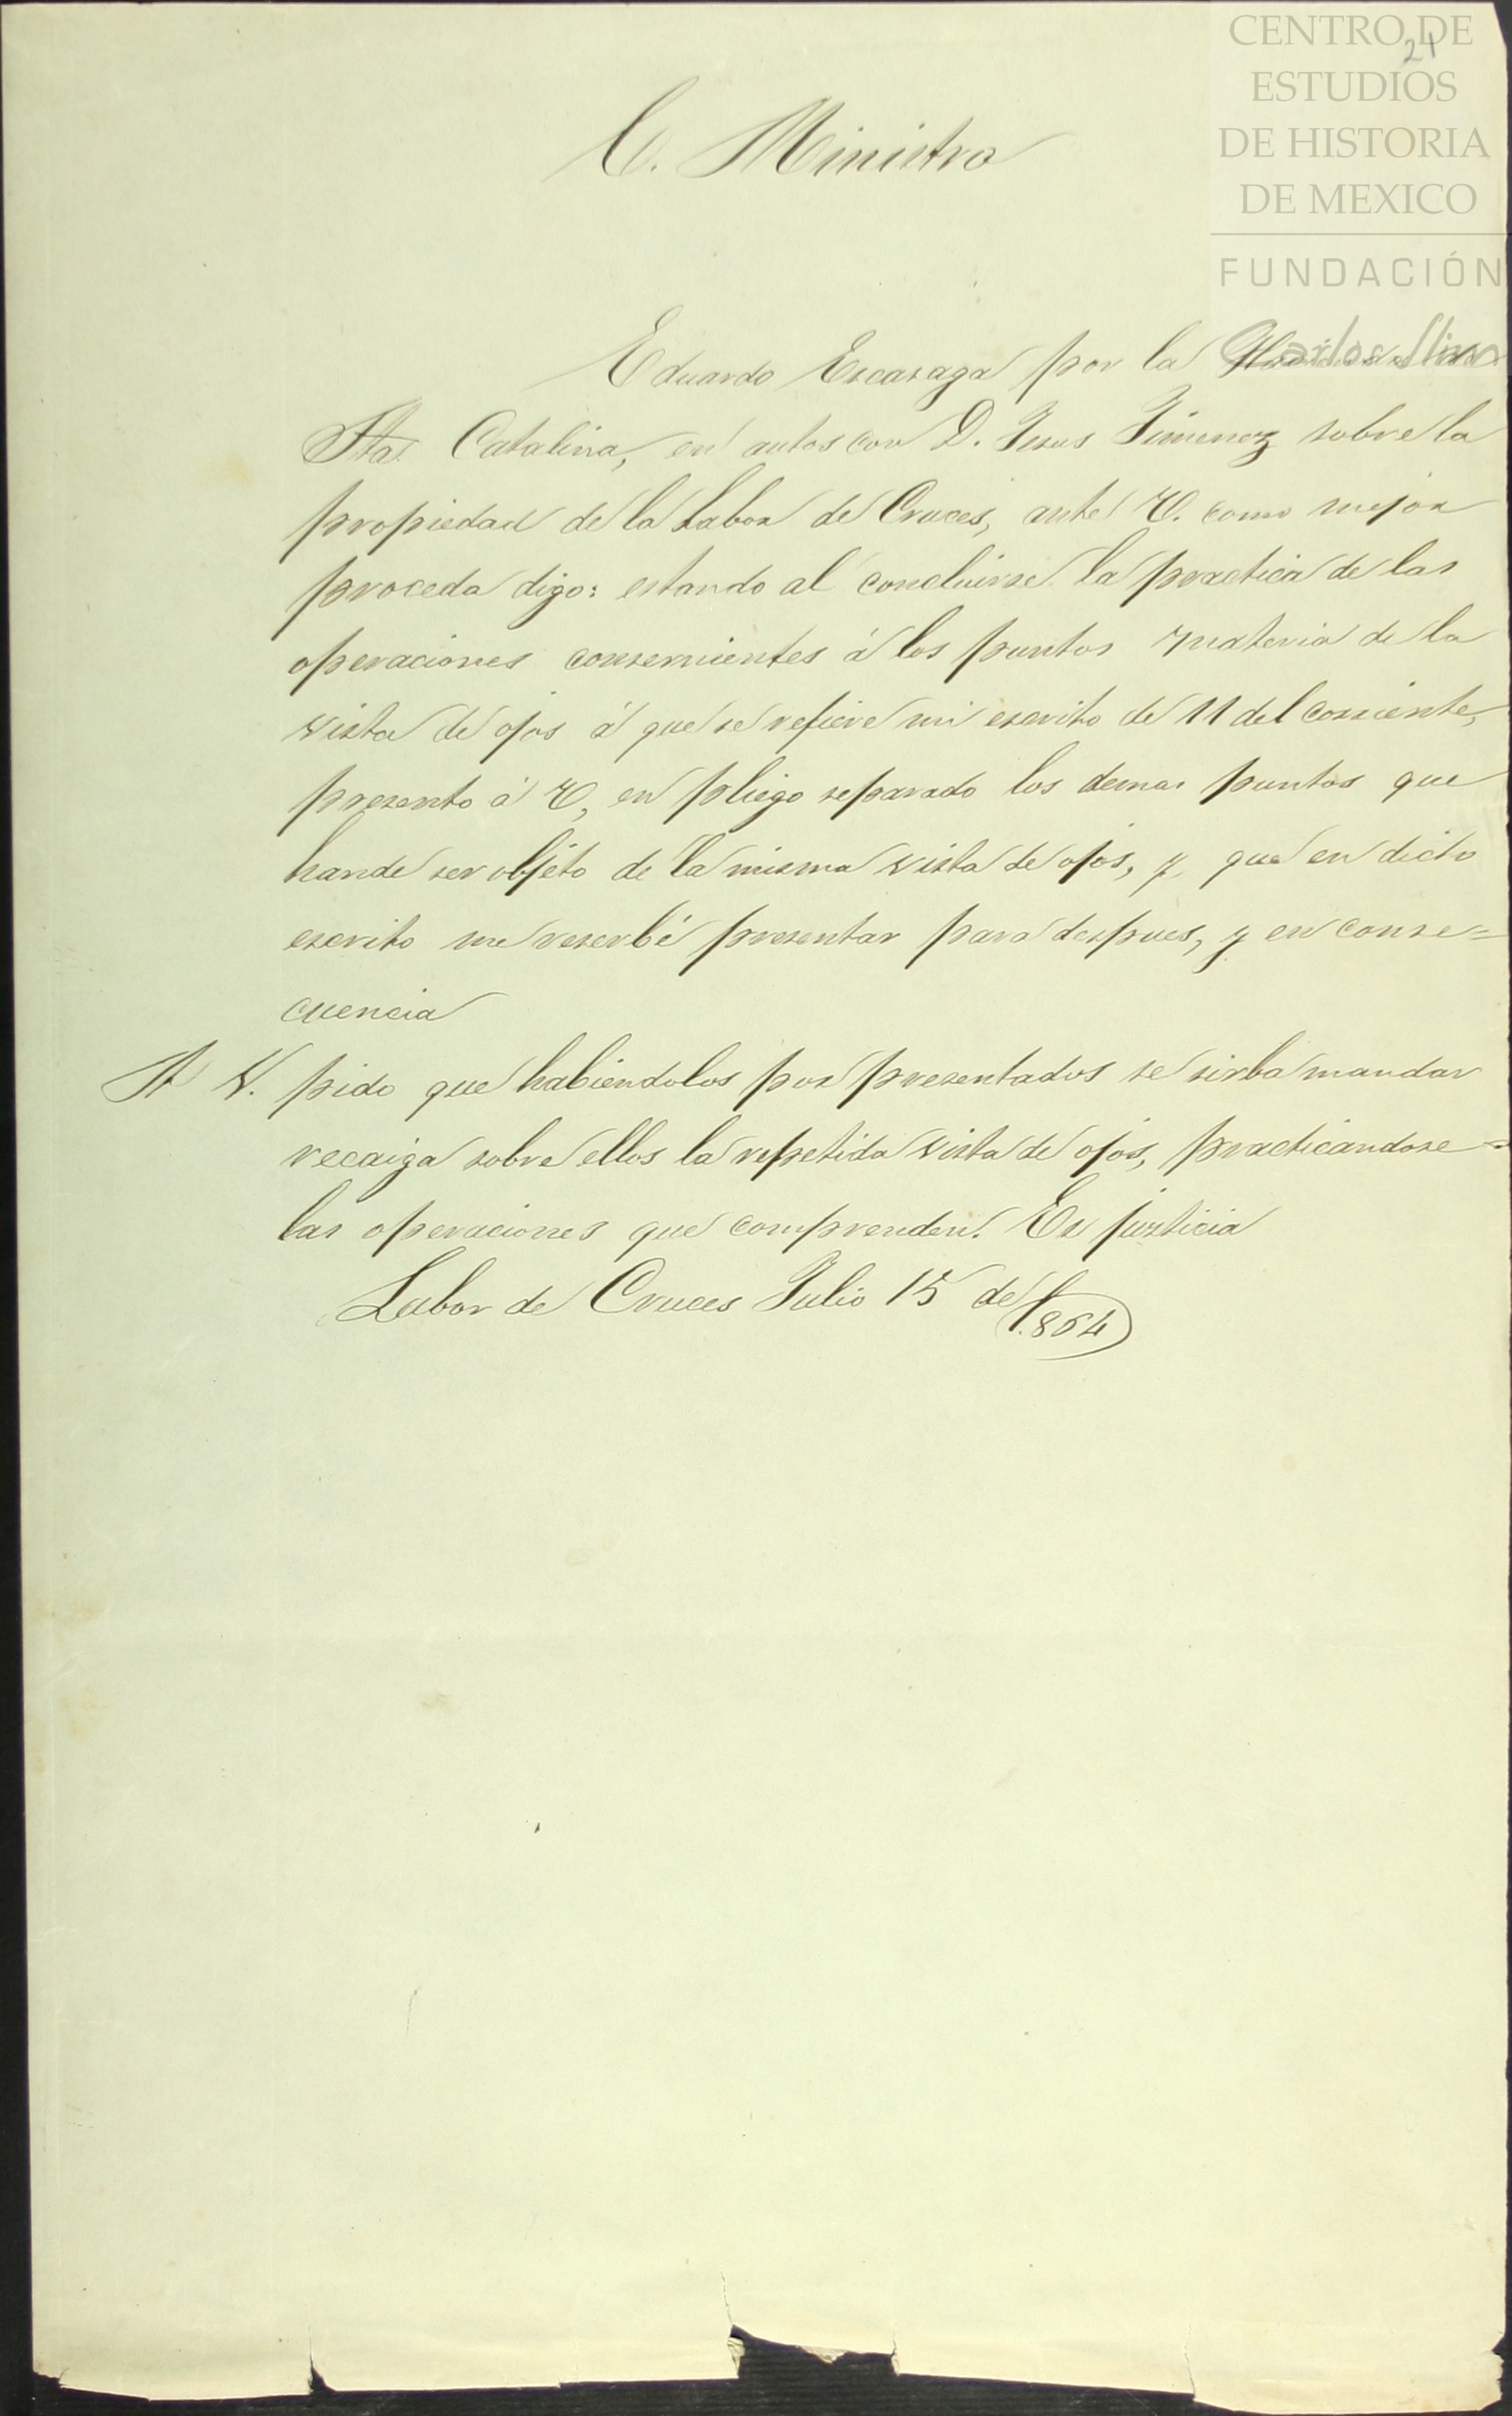 24
CENTRO DE
ESTUDIOS
DE HISTORIA
DE MEXICO
FUNDACIÓN
Carlos Slim
C. Ministro
Eduardo Escarsaga por la Hacienda de
Sta. Catalina, en autos con D. Jesus Jimenez sobre la
propiedad de la Labor de Cruces, ante V. como mejor
proceda digo: estando al concluirse la practica de las
operaciones consernientes á los puntos materia de la
vista de ojos á que se refiere mi escrito de 11 del corriente,
presento á V, en pliego separado los demas puntos que
hande ser objeto de la misma vista de ojos, y que en dicho
escrito me reserbé presentar para despues, y en conse=
cuencia
A V. pido que habiendolos por presentados se sirba mandar
recaiga sobre ellos la repetida vista de ojos, practicandose
las operaciones que comprenden. Es justicia
Labor de Cruces Julio 15 de 1.864